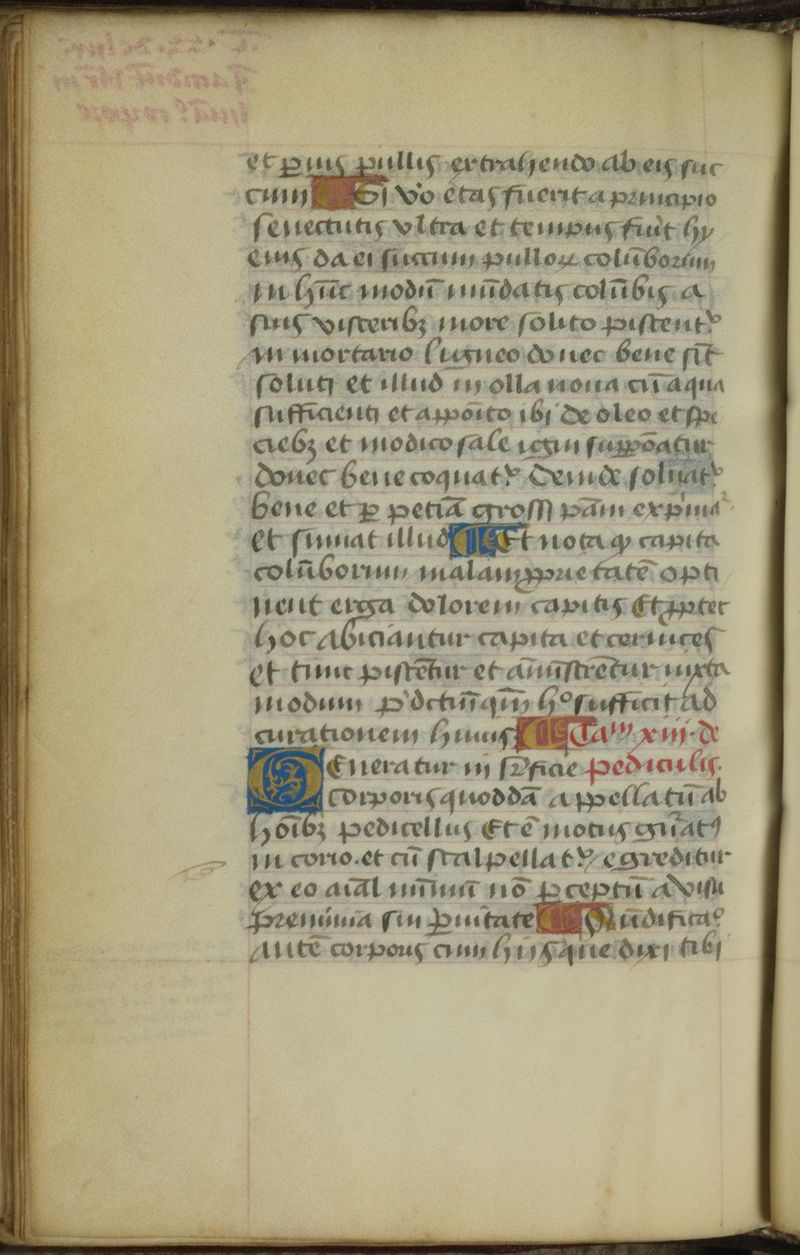 et ꝑuis pullis extrahendo ab eis suc
cum Si vo etas fuerit a principio
senectutis vltra et tempus fiut hy
ems da ei succum pulloꝝ colūborum
in hūc modū mūdatis colūbis a
suis visceribꝫ more solito pistent᷑
in mortario ligneo donec bene sīt
soluti et illud in olla noua cū aqua
sufficienti et appōito ibi de oleo et spe
ciebꝫ et modico sale igni suppōatur
donec bene coquat᷑ Deinde soluat᷑
bene et ꝑ petiā grossi pāni exprima
et sumat illud Et nota ꝙ capita
colūborum malam ꝓprietatē opti
nent erga dolorem capitis Et ꝓpter
hoc abiciantur capita et ceruices
et tunc pistētur et amīstrētur iuxta
modum p̄dctū hº sufficit ad
curationem huius Caᵐ xiij · de
Eneratur in sꝑficie pediculis.
corporis quoddā appellatū ab
hoībꝫ pedicellus Et ē motus gn̄atꝰ
in corio . et cū scalpellat᷑ egreditur
ex eo aīal mīmū nō ꝑceptū a visu
pre nimia sui ꝑuitate Mūdifica
autē corpus cum hijs que dixi tibi